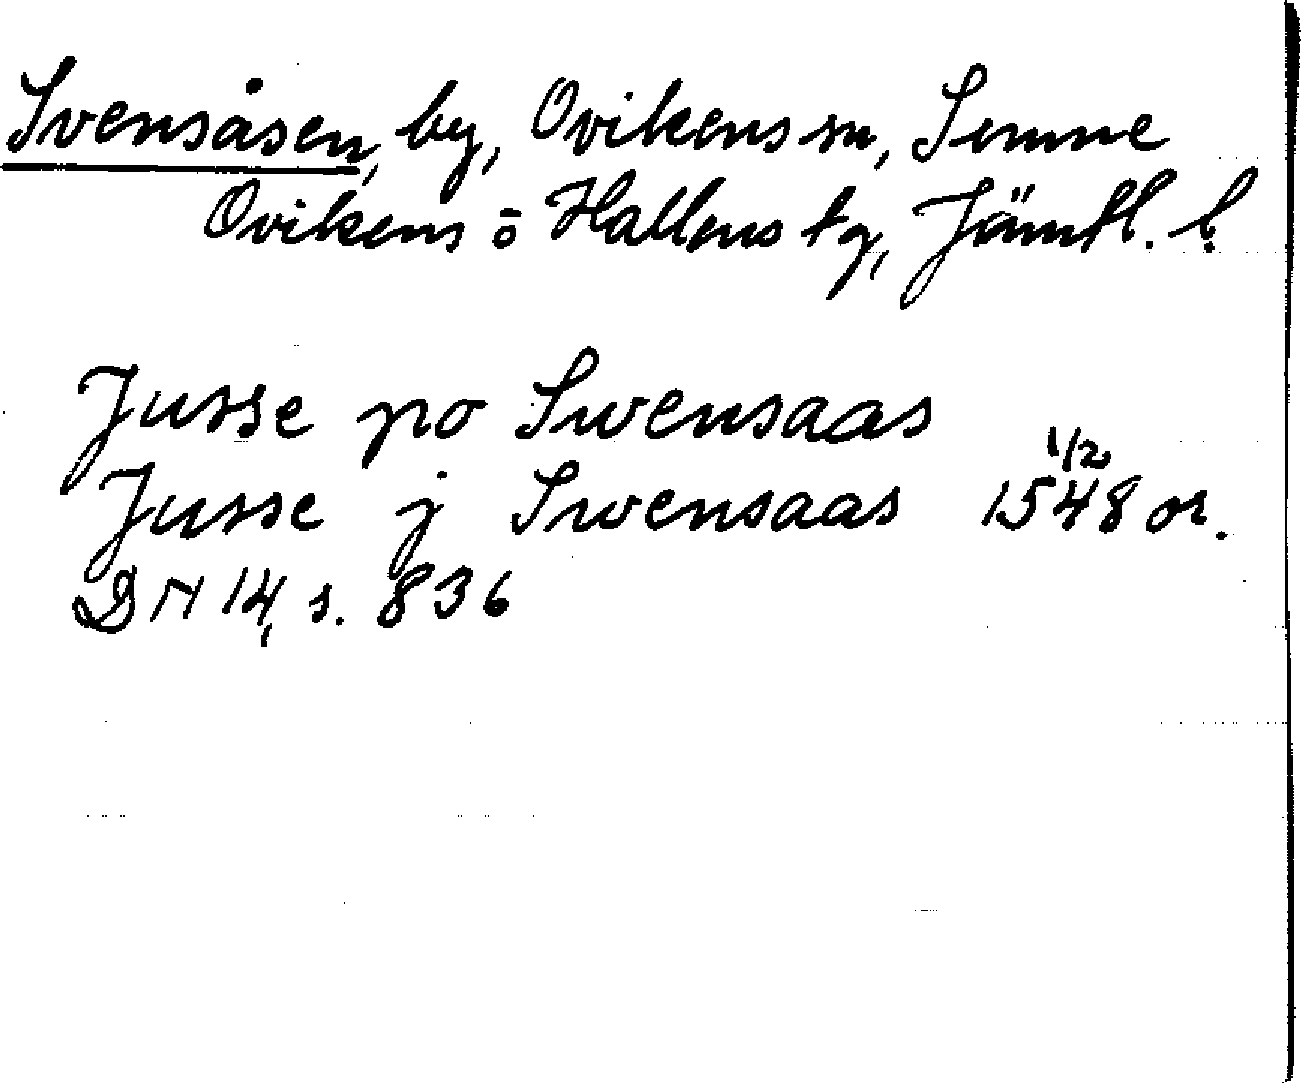 Svensåsen, by, Ovikens sn, Sunne
Ovikens o Hallens tg, Jämtl. l.
Jusse po Swensaas
Jusse j Swensaas 1/2 1548 or.
DN 14, s. 836